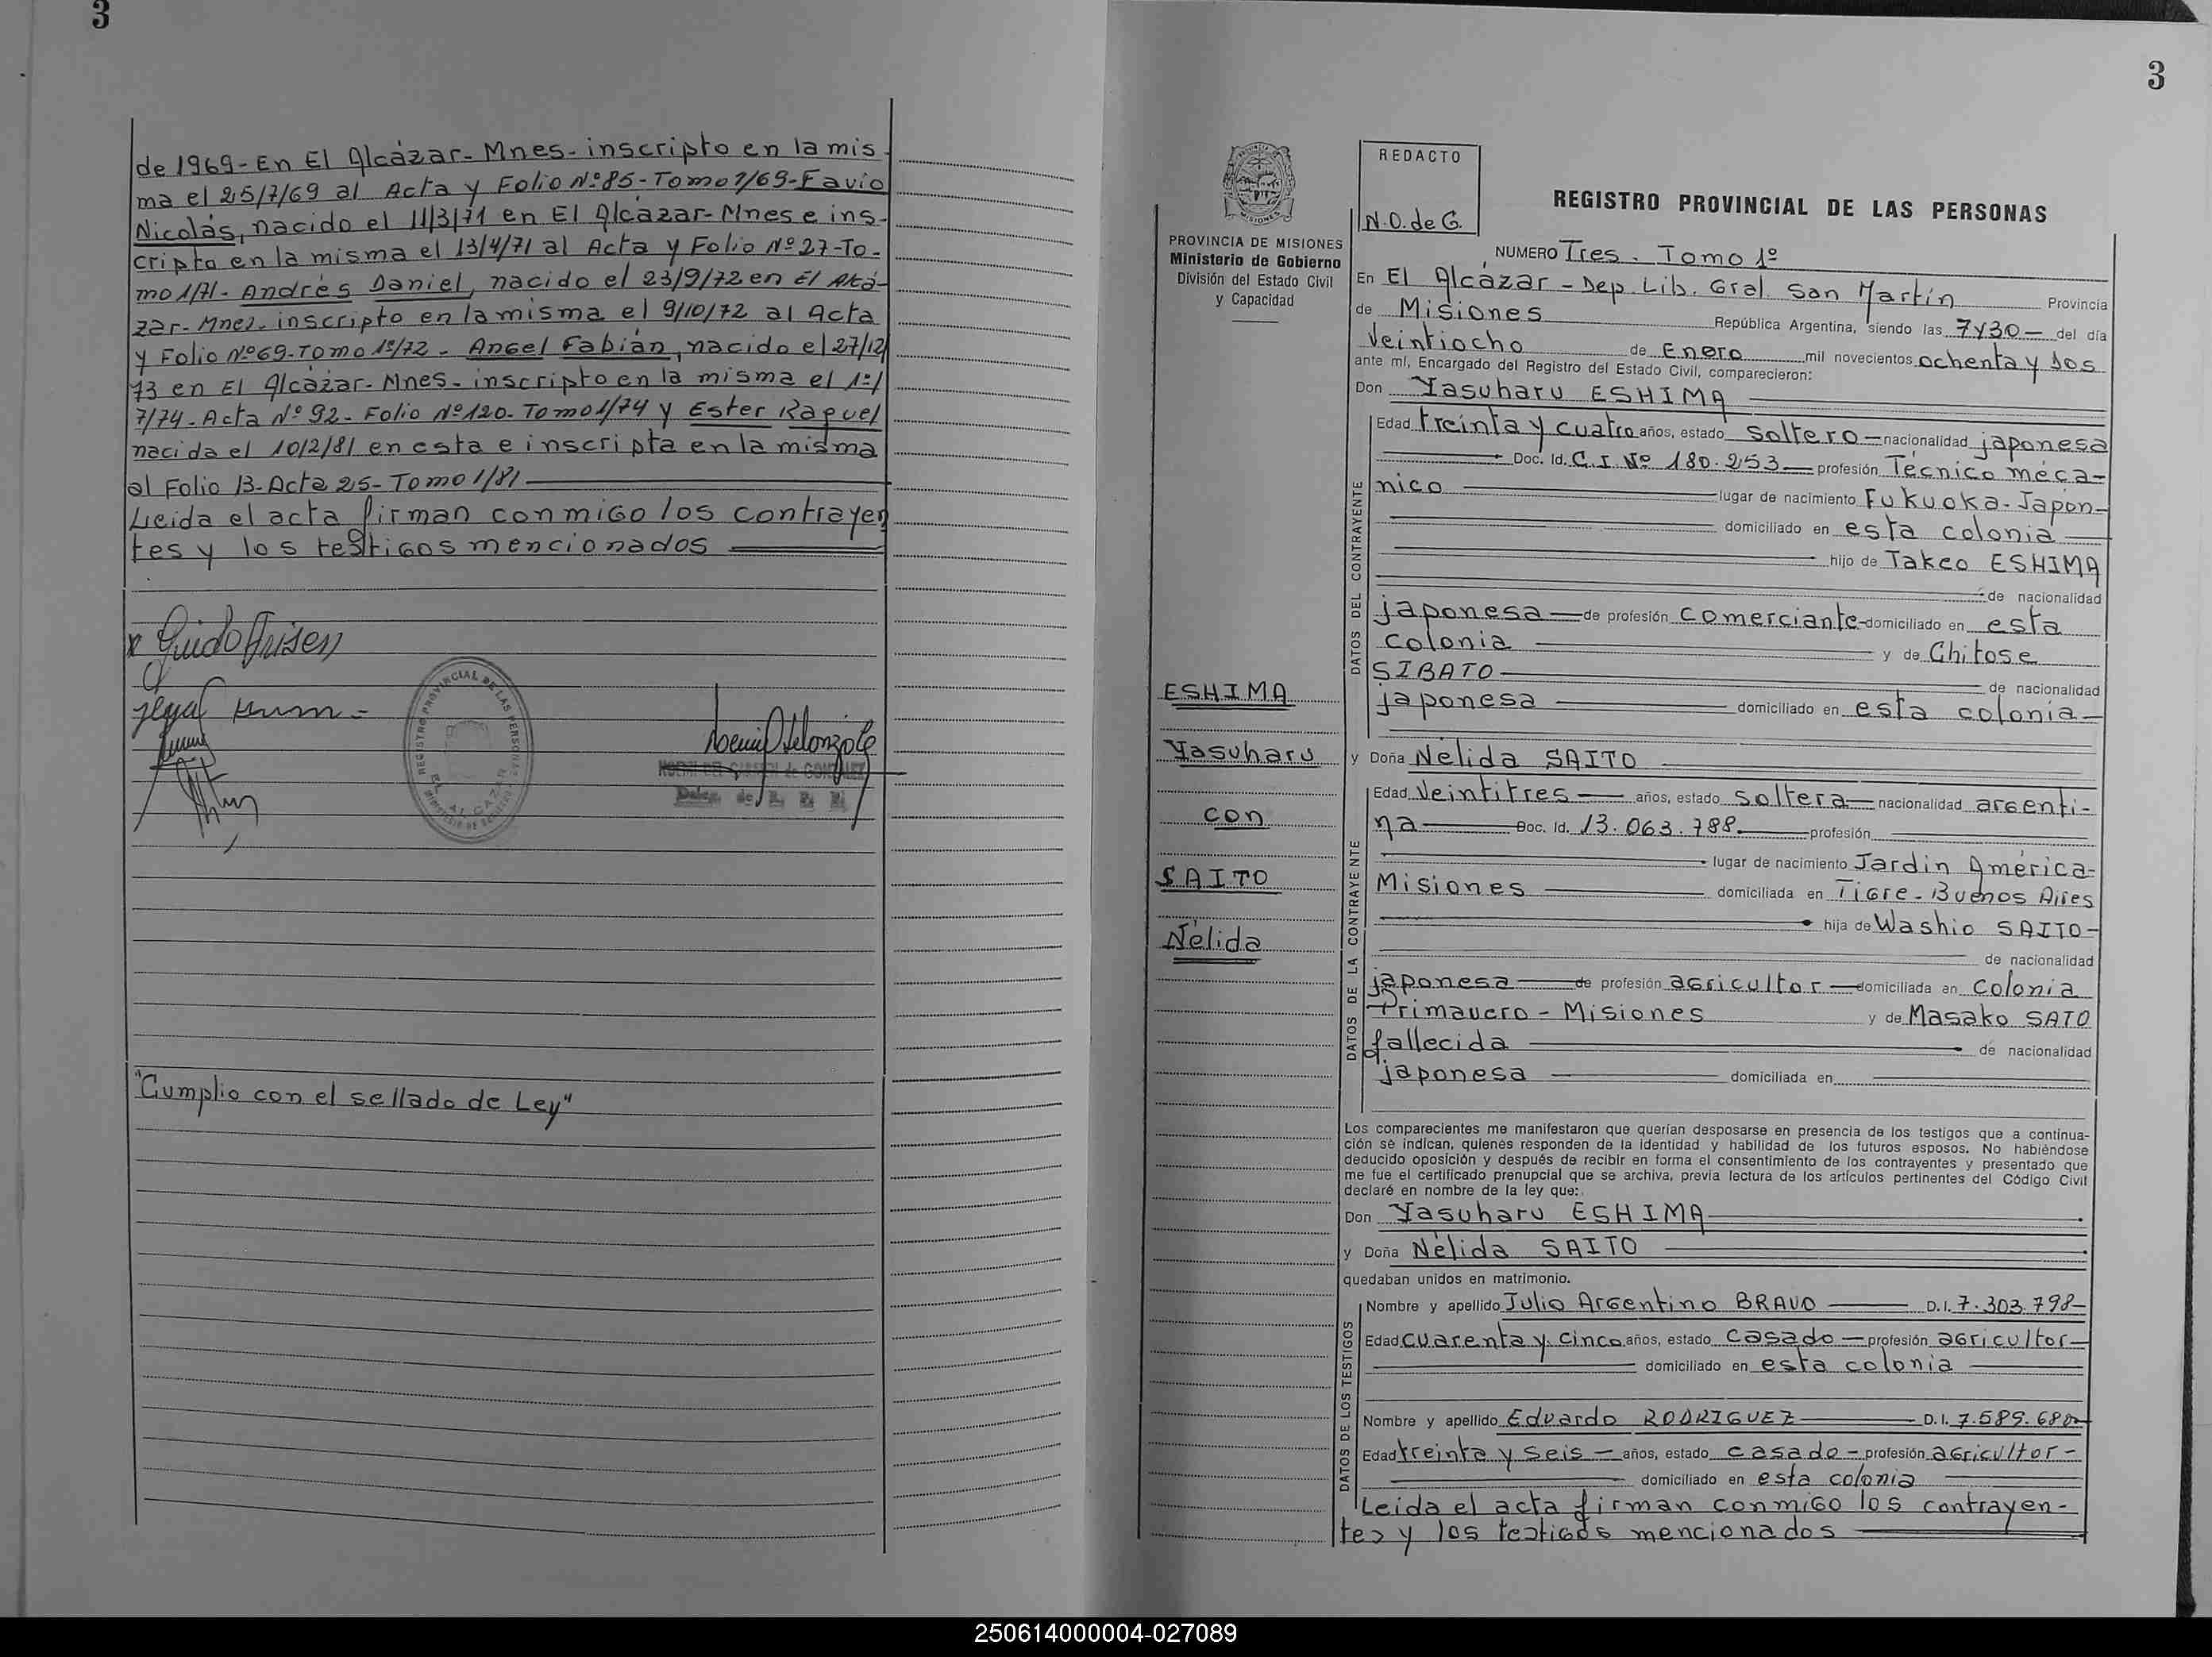 3
de 1969- En El Alcázar- Mnes- inscripto en la mis
ma el 25/7/69 al Acta y Folio Nº 85- Tomo 1/69- Favio
Nicolás, nacido el 11/3/71 en El Alcázar- Mnes e ins-
cripto en la misma el 13/4/71 al Acta y Folio Nº 27- To-
mo 1/71- Andrés Daniel, nacido el 23/9/72 en El Alcá-
zar- Mnes. inscripto en la misma el 9/10/72 al Acta
y Folio Nº 69- Tomo 1º/72 - Angel Fabián, nacido el 27/12/
73 en El Alcázar- Mnes- inscripto en la misma el 1º/
7/74- Acta Nº 92- Folio Nº 120- Tomo 1/74 y Ester Raquel
nacida el 10/2/81 en esta e inscripta en la misma
al Folio 13- Acta 25- Tomo 1/81
Leida el acta firman conmigo los contrayen
tes y los testigos mencionados
REGISTRO PROVINCIAL DE LAS PERSONAS
"Cumplio con el sellado de Ley"
3
PROVINCIA DE MISIONES
Ministerio de Gobierno
División del Estado Civil
y Capacidad
ESHIMA
Yasuharu
con
SAITO
Nélida
REDACTO
N.O. de G.
REGISTRO PROVINCIAL DE LAS PERSONAS
NUMERO Tres - Tomo 1º
En El Alcázar - Dep. Lib. Gral. San Martín Provincia
de Misiones República Argentina, siendo las 7 y 30 - del día
Veintiocho de Enero mil novecientos ochenta y dos
ante mí, Encargado del Registro del Estado Civil, comparecieron:
Don Yasuharu ESHIMA
DATOS DEL CONTRAYENTE
Edad treinta y cuatro años, estado soltero - nacionalidad japonesa
Doc. Id. C.I. Nº 180.253 profesión Técnico meca-
nico lugar de nacimiento Fukuoka- Japon-
domiciliado en esta colonia
hijo de Takeo ESHIMA
de nacionalidad
japonesa - de profesión comerciante - domiciliado en esta
colonia y de Chitose
SIBATO de nacionalidad
japonesa domiciliado en esta colonia -
y Doña Nélida SAITO
DATOS DE LA CONTRAYENTE
Edad Veintitres - años, estado soltera - nacionalidad argenti-
na Doc. Id. 13.063.788. profesión
lugar de nacimiento Jardin América-
Misiones domiciliada en Tigre - Buenos Aires
hija de Washio SAITO -
de nacionalidad
japonesa - de profesión agricultor - domiciliada en colonia
Primavera - Misiones y de Masako SATO
fallecida de nacionalidad
japonesa domiciliada en
Los comparecientes me manifestaron que querían desposarse en presencia de los testigos que a continua-
ción se indican, quienes responden de la identidad y habilidad de los futuros esposos. No habiéndose
deducido oposición y después de recibir en forma el consentimiento de los contrayentes y presentado que
me fue el certificado prenupcial que se archiva, previa lectura de los artículos pertinentes del Código Civil
declaré en nombre de la ley que:
Don Yasuharu ESHIMA
y Doña Nélida SAITO
quedaban unidos en matrimonio.
DATOS DE LOS TESTIGOS
Nombre y apellido Julio Argentino BRAVO D.I. 7.303.798-
Edad cuarenta y cinco años, estado casado - profesión agricultor -
domiciliado en esta colonia
Nombre y apellido Eduardo RODRIGUEZ D.I. 7.589.680
Edad treinta y seis - años, estado casado - profesión agricultor -
domiciliado en esta colonia
Leida el acta firman conmigo los contrayen-
tes y los testigos mencionados
250614000004-027089